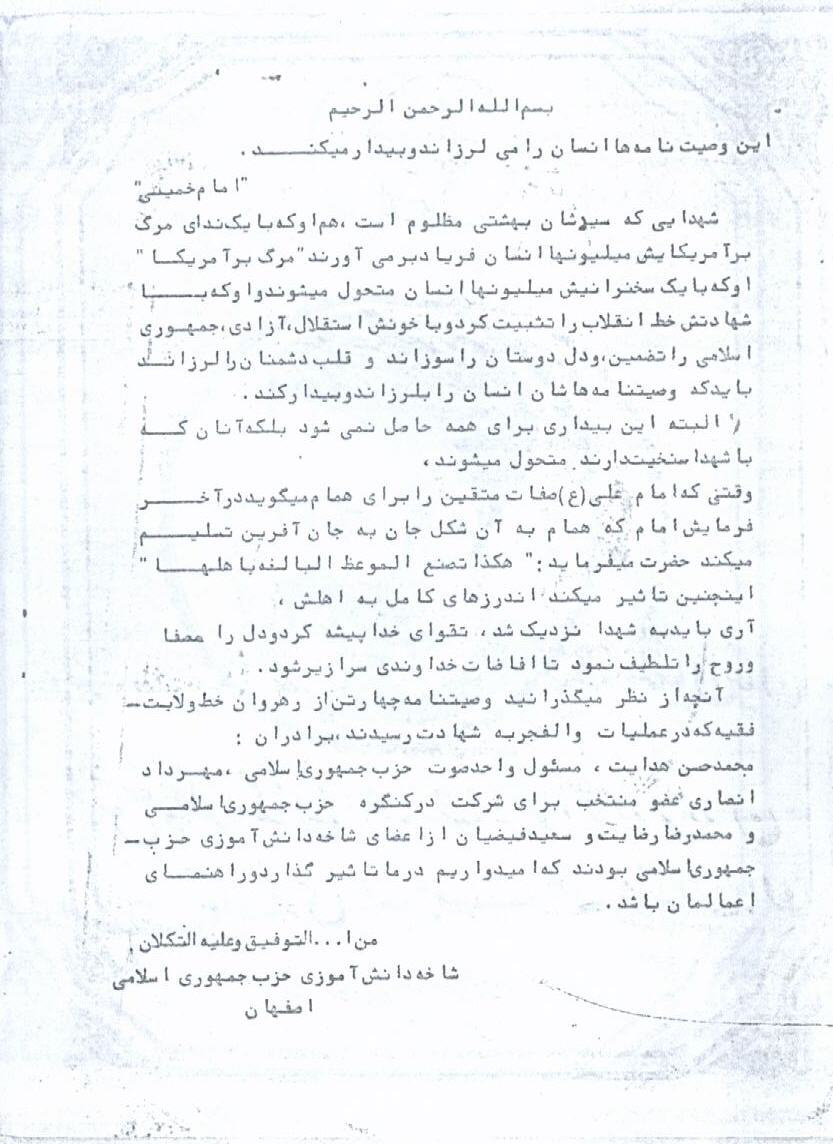 بسم الله الرحمن الرحیم
این وصیت نامه ها انسان را می لرزاند و بیدار میکنـــد .
"امام خمینی"
شهدایی که سیدشان بهشتی مظلوم است ،هم او که با یک ندای مرگ
بر آمریکایش میلیونها انسان فریاد برمی آورند "مرگ بر آمریکـا "
او که با یک سخنرانیش میلیونها انسان متحول میشوند و او که بـــا
شهادتش خط انقلاب را تثبیت کرد و با خونش استقلال،آزادی،جمهـوری
اسلامی را تضمین،و دل دوستان را سوزاند و قلب دشمنان را لرزانـــد
باید که وصیتنامه هاشان انسان را بلرزاند و بیدار کند .
البته این بیداری برای همه حاصل نمی شود بلکه آنان کـــه
با شهدا سنخیت دارند متحول میشوند ،
وقتی که امام علی(ع) صفات متقین را برای همام میگوید در آخـــر
فرمایش امام که همام به آن شکل جان به جان آفرین تسلیـــم
میکند حضرت میفرماید : " هکذا تصنع الموعظ البالغه باهلهـــا "
اینچنین تاثیر میکند اندرزهای کامل به اهلش ،
آری باید به شهدا نزدیک شد ، تقوای خدا پیشه کرد و دل را مصفا
و روح را تلطیف نمود تا افاضات خداوندی سرازیر شود .
آنچه از نظر میگذرانید وصیتنامه چهارتن از رهروان خط ولایت ـ
فقیه که در عملیات والفجر به شهادت رسیدند ،برادران :
محمدحسن هدایت ، مسئول واحد صوت حزب جمهوری اسلامی ،مهـرداد
انصاری عضو منتخب برای شرکت در کنگره حزب جمهوری اسلامـــی
و محمدرضا رضایت و سعید فیضیان از اعضای شاخه دانش آموزی حزب ـ
جمهوری اسلامی بودند که امیدواریم در ما تاثیر گذارد و راهنمـــای
اعمالمان باشد .
من ا... التوفیق و علیه التکلان .
شاخه دانش آموزی حزب جمهوری اسلامی
اصفهان